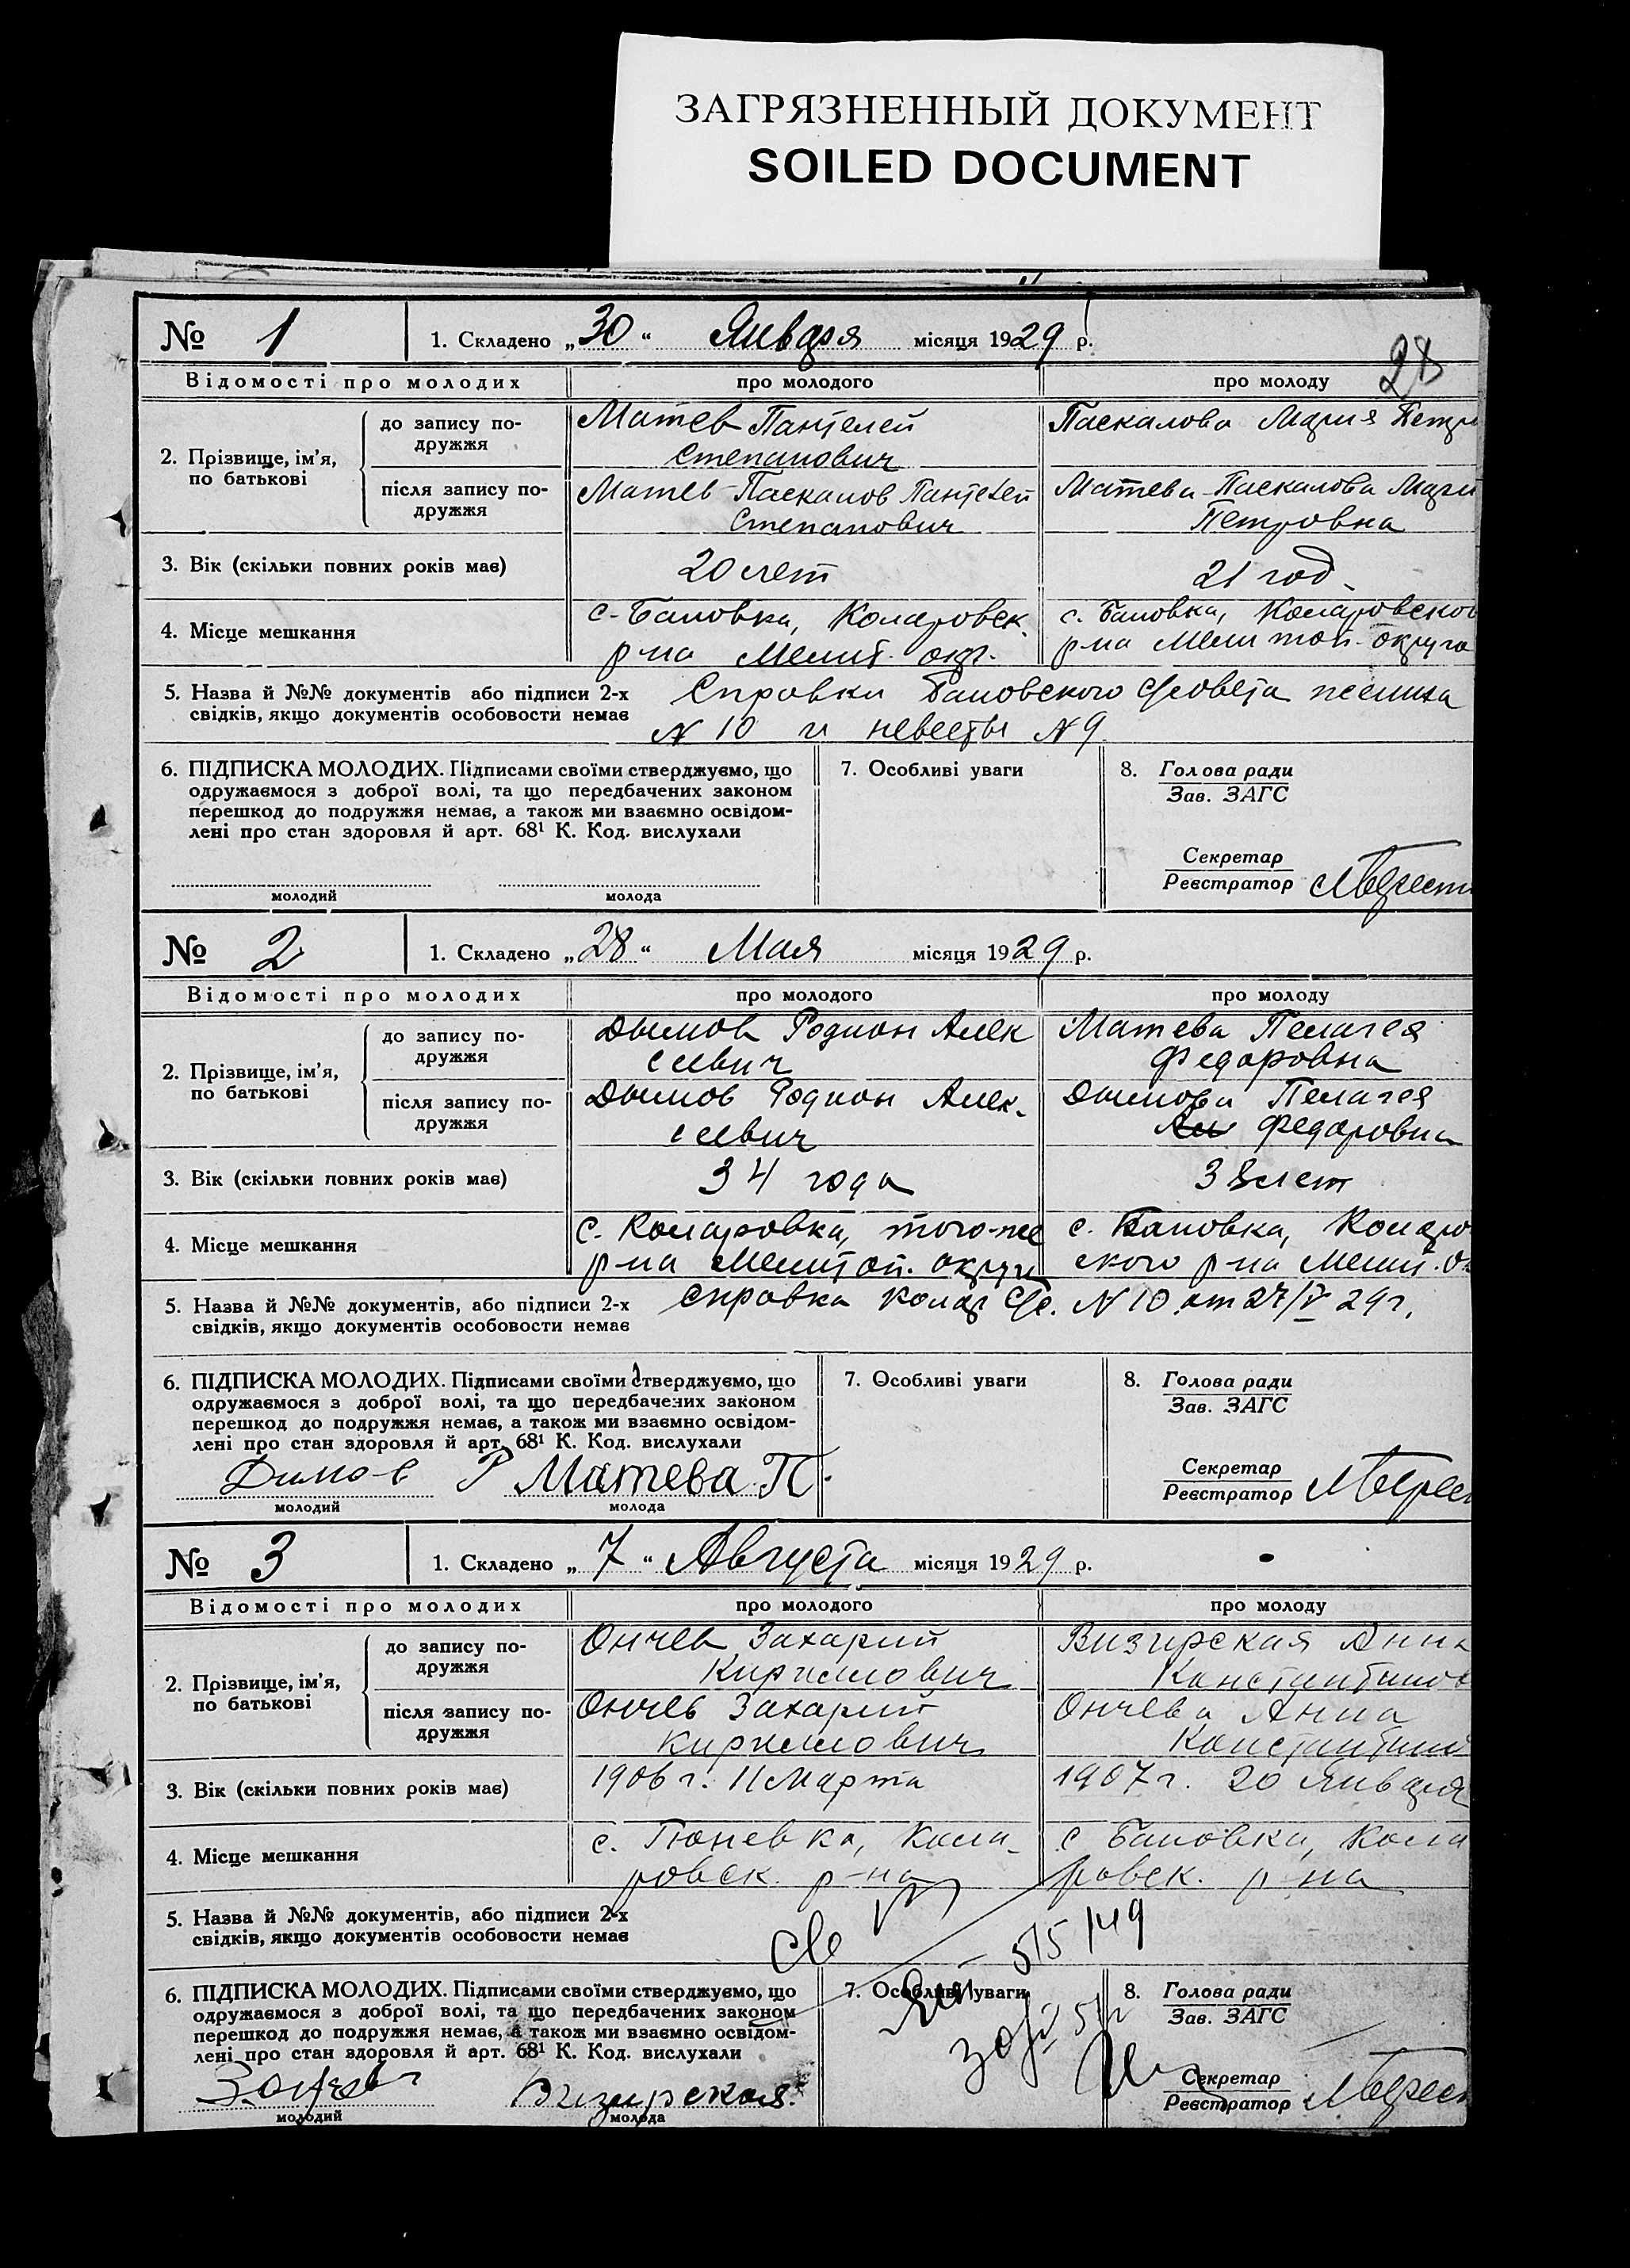 ЗАГРЯЗНЕННЫЙ ДОКУМЕНТ
SOILED DOCUMENT
№ 1 1. Складено „30“ Января місяця 1929 р.
28
Відомості про молодих про молодого про молоду
2. Прізвище, ім’я, по батькові
до запису подружжя
Матев Пантелей
Степанович
Паскалова Мария Петр
після запису подружжя
Матев-Паскалов Пантелей
Степанович
Матева-Паскалова Мари
Петровна
3. Вік (скільки повних років має) 20 лет 21 год
4. Місце мешкання
с. Бановка, Коларовск.
р-на Мелит. окр.
с. Бановка, Коларовского
р-на Мелитоп. округа
5. Назва й №№ документів або підписи 2-х
свідків, якщо документів особовости немає
Справки Бановского с/совета жениха
N 10 и невесты N 9.
6. ПІДПИСКА МОЛОДИХ. Підписами своїми стверджуємо, що
одружаємося з доброї волі, та що передбачених законом
перешкод до подружжя немає, а також ми взаємно освідом-
лені про стан здоровля й арт. 68¹ К. Код. вислухали
молодий молода
7. Особливі уваги
8. Голова ради
Зав. ЗАГС
Секретар
Реєстратор
№ 2 1. Складено „28“ Мая місяця 1929 р.
Відомості про молодих про молодого про молоду
2. Прізвище, ім’я, по батькові
до запису подружжя
Дымов Родион Алек
сеевич
Матева Пелагея
Федоровна
після запису подружжя
Дымов Родион Алек-
сеевич
Дымова Пелагея
Федоровна
3. Вік (скільки повних років має) 34 года 38 лет
4. Місце мешкання
с. Коларовка, того-же
р-на Мелитоп. округа
с. Бановка, Коларо
ского р-на Мелит. о
5. Назва й №№ документів, або підписи 2-х
свідків, якщо документів особовости немає
Справка Колар с/с. N 10 от 27/V 29 г.
6. ПІДПИСКА МОЛОДИХ. Підписами своїми стверджуємо, що
одружаємося з доброї волі, та що передбачених законом
перешкод до подружжя немає, а також ми взаємно освідом-
лені про стан здоровля й арт. 68¹ К. Код. вислухали
Димов Р Матева П.
молодий молода
7. Особливі уваги
8. Голова ради
Зав. ЗАГС
Секретар
Реєстратор
№ 3 1. Складено „7“ Августа місяця 1929 р.
Відомості про молодих про молодого про молоду
2. Прізвище, ім’я, по батькові
до запису подружжя
Ончев Захарий
Кириллович
Визирская Анна
Константинов
після запису подружжя
Ончев Захарий
Кириллович
Ончева Анна
Константин
3. Вік (скільки повних років має) 1906 г. 11 Марта 1907 г. 20 Января
4. Місце мешкання
с. Гюневка, Кола-
ровск. р-на
с Бановка, Кола
ровск. р-на
5. Назва й №№ документів, або підписи 2-х
свідків, якщо документів особовости немає
515/49
6. ПІДПИСКА МОЛОДИХ. Підписами своїми стверджуємо, що
одружаємося з доброї волі, та що передбачених законом
перешкод до подружжя немає, а також ми взаємно освідом-
лені про стан здоровля й арт. 68¹ К. Код. вислухали
Визирская
молодий молода
7. Особливі уваги
8. Голова ради
Зав. ЗАГС
Секретар
Реєстратор